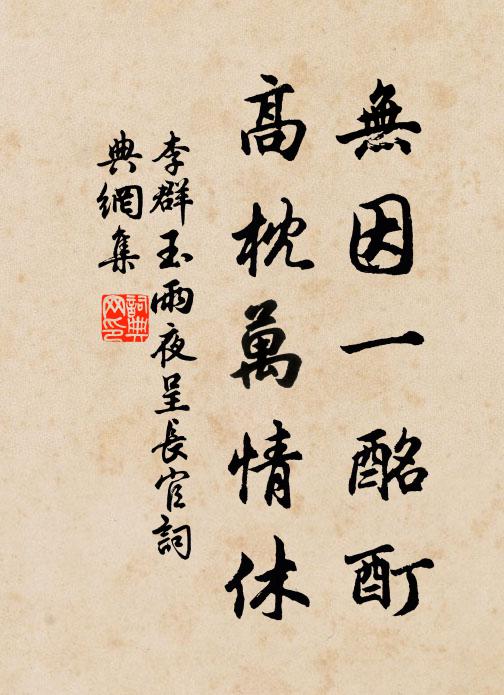 無因一酩酊
高枕萬情休
李群玉雨夜呈長官詞
典網集
詞典网印